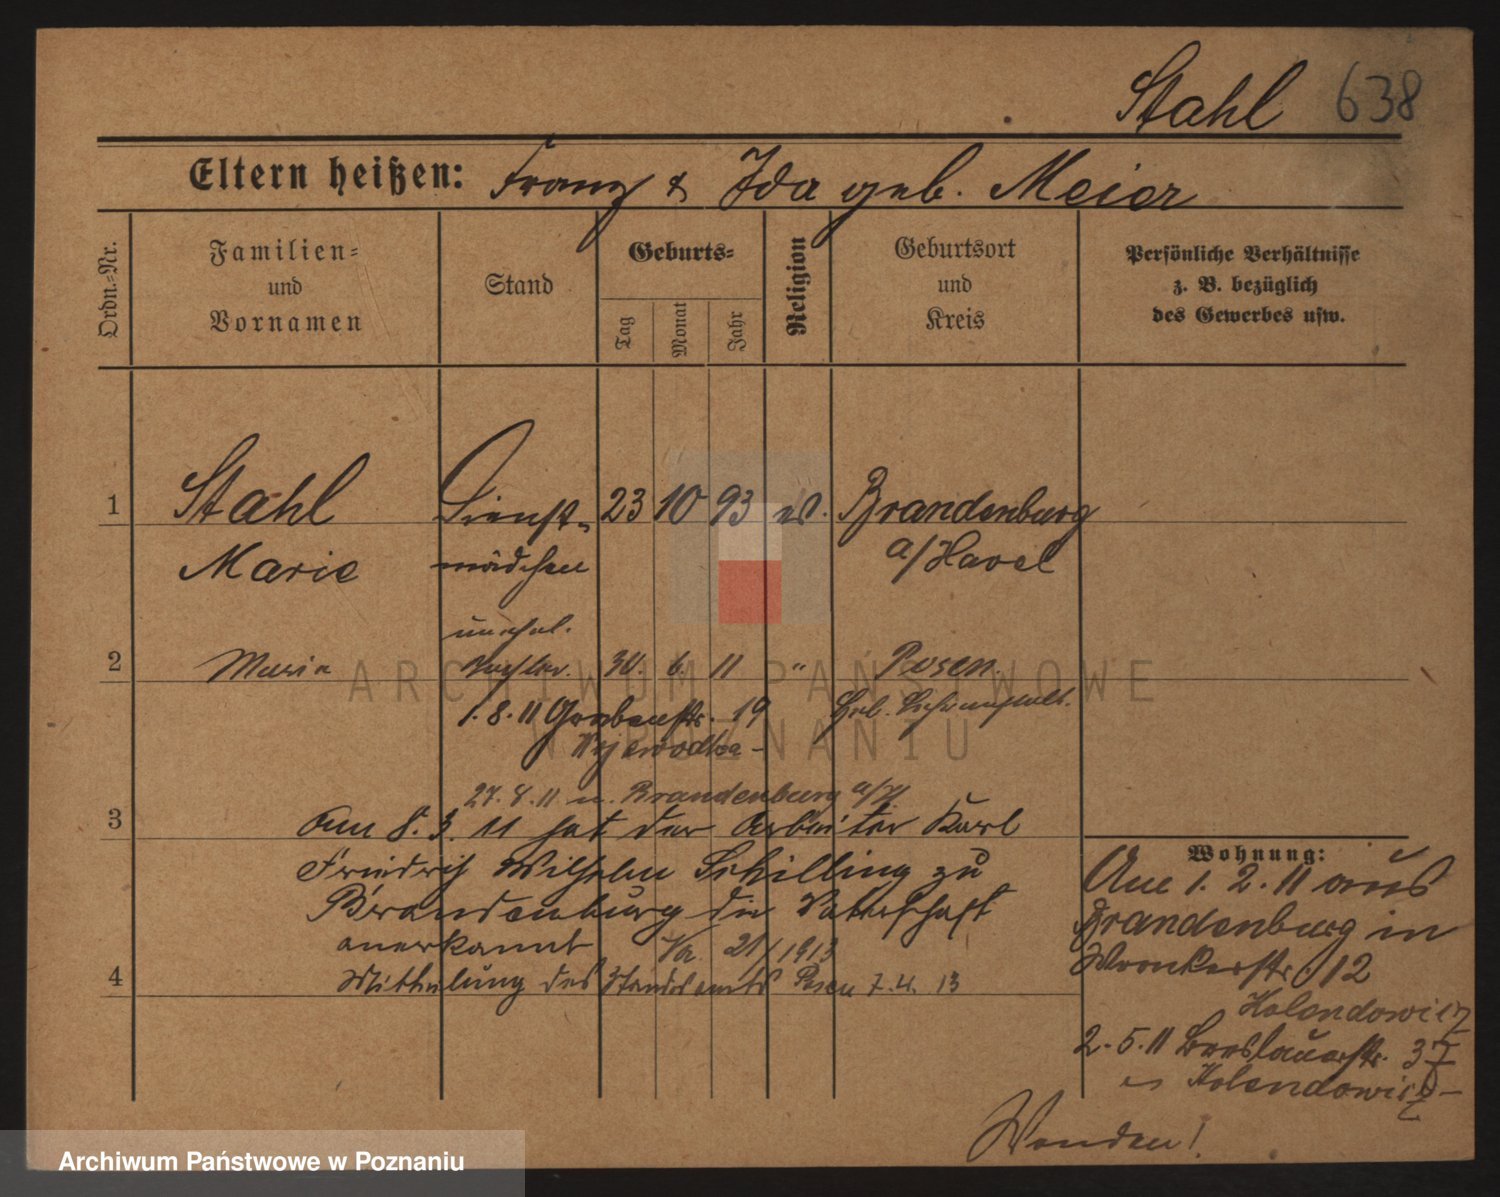 Stahl 638
Eltern heißen: Franz & Ida geb. Meier
Ordn.=Nr.
Familien=
und
Vornamen
Stand
Geburts=
Tag
Monat
Jahr
Religion
Geburtsort
und
Kreis
Persönliche Verhältnisse
z. B. bezüglich
des Gewerbes usw.
1 Stahl Dienst= 23 10 93 ev. Brandenburg
Marie mädchen a/Havel
unehel.
2 Maria Tochter. 30. 6. 11 " Posen.
1.8.11 Grabenstr. 19
Wojewodka -
27.8.11 n. Brandenburg a/H
3 Am 8. 3. 11 hat der Arbeiter Karl
Friedrich Wilhelm Schilling zu
Brandenburg die Vaterschaft
anerkannt 21/1913
4 Mittheilung des Standesamts Posen 7.4. 13
Wohnung:
Am 1. 2. 11 aus
Brandenburg in
Wronkerstr. 12
Holendowicz
2.5.11 Breslauerstr. 37
Holendowicz -
Wenden!
ARCHIWUM PAŃSTWOWE
W POZNANIU
Archiwum Państwowe w Poznaniu